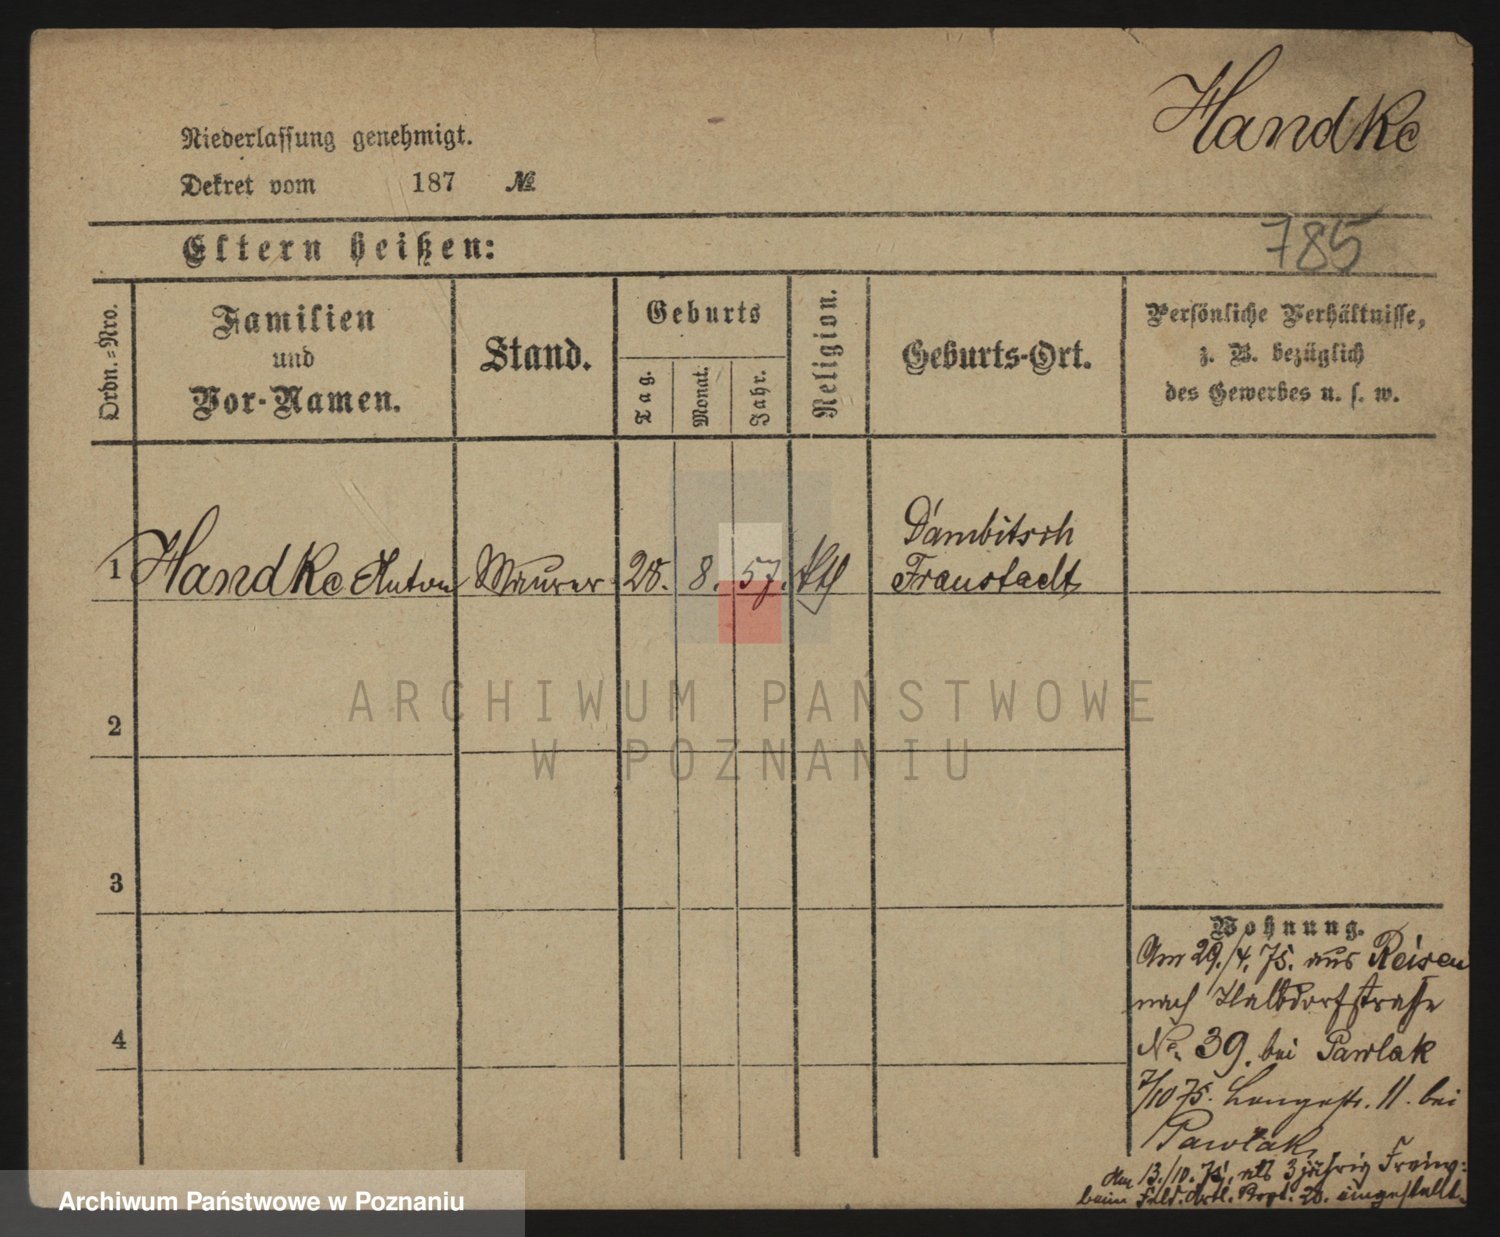 Handke
Niederlassung genehmigt.
Dekret vom 187 №
785
Eltern heißen:
Ordn.=Nro.
Familien
und
Vor-Namen.
Stand.
Geburts
Tag.
Monat.
Jahr.
Religion.
Geburts-Ort.
Persönliche Verhältnisse,
z. B. bezüglich
des Gewerbes u. s. w.
1 Handke Anton Maurer 28. 8. 57. kth
Dambitsch
Fraustadt
2
3
4
ARCHIWUM PAŃSTWOWE
W POZNANIU
Wohnung.
Am 29./4. 75. aus Reisen
nach Halbdorfstraße
No. 39. bei Pawlak
7/10 75. Langestr. 11. bei
Pawlak
Am 13./10. 75. als 3jährig Freiw:
beim Feld. Artl. Regt. 20. eingestellt.
Archiwum Państwowe w Poznaniu